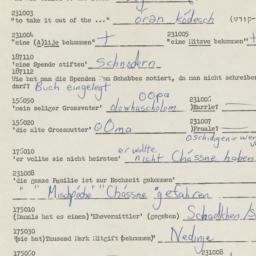 231003
"to take it out of the ..." oran kodesch
231004 231005
"eine (A)lije bekommen" + "eine Mitzve bekommen"
187110
'eine Spende stiften' Schnodern
187112
Wie hat man die Spenden am Schabbes notiert, da man nicht schreiben
darf? Buch eingelegt
155050 OOpa 231006
'mein selger Grossvater' olowhascholem )Harrle?
155020 231007
'die alte Grossmutter' OOma )Fraale?
er wollte
175010
'er wollte sie nicht heiraten' nicht Chassne haben
231008
'die ganze Familie ist zur Hochzeit gekommen'
" " Mischpoche" "Chassne" gefahren
175010
(Damals hat es einen) 'Ehevermittler' (gegeben) Schadchen
175030
(Sie hat) Tausend Mark Mitgift (bekommen)" Nedinje
175060 231008